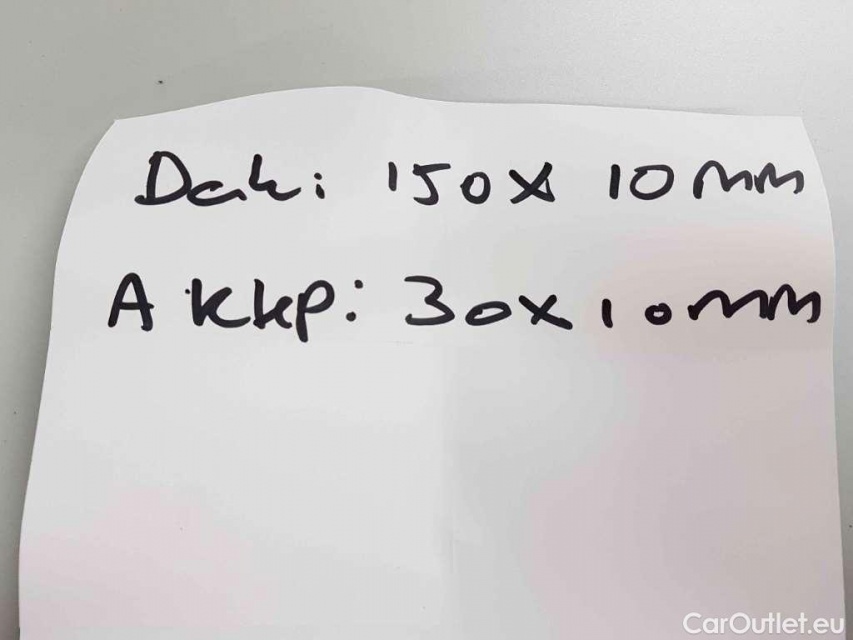 Dak: 150 x 10 mm
A kkp: 30 x 10 mm
CarOutlet.eu